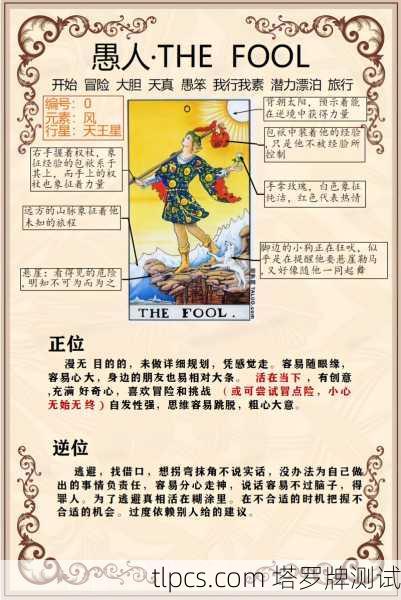 愚人·THE FOOL
开始 冒险 大胆 天真 愚笨 我行我素 潜力漂泊 旅行
编号：0
元素：风
行星：天王星
背朝太阳，预示着能
在逆境中获得力量
包袱中装着他的经验
,只是他不被经验所
控制
右手握着权杖，象
征经验的包袱系于
其上，而手上的权
杖也象征着力量
手拿玫瑰，白色象征
纯洁，红色代表热情
远方的山脉象征着他
未知的旅程
脚边的小狗正在狂吠，似
乎是在提醒他要悬崖勒马
,又好像随他一同起舞
悬崖：看得见的危险
,明知不可为而为之
0
THE FOOL.
TALUO.com
正位
漫无 目的的，未做详细规划，凭感觉走。容易随眼缘，
容易心大，身边的朋友也易相对大条。 活在当下 ，有创意
,充满 好奇心，喜欢冒险和挑战 （或可尝试冒点险，小心
无始无终）自发性强，思维容易跳脱，粗心大意。
逆位
逃避，找借口，想拐弯抹角不说实话，没办法为自己做
出的事情负责任，容易分心走神，说话容易不过脑子，得
罪人。为了逃避真相活在糊涂里。在不合适的时机把握不
合适的机会。过度依赖别人给的建议。
tlpcs.com 塔罗牌测试